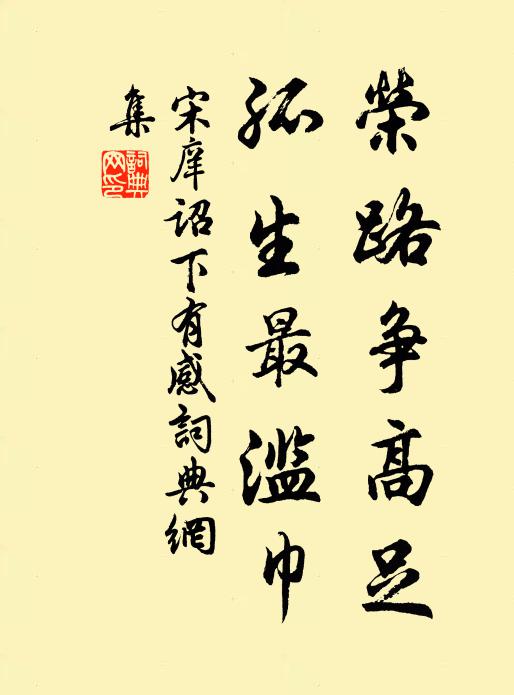 榮路争高足
孤生最滥巾
宋庠詔下有感詞典網
集
詞典
网印